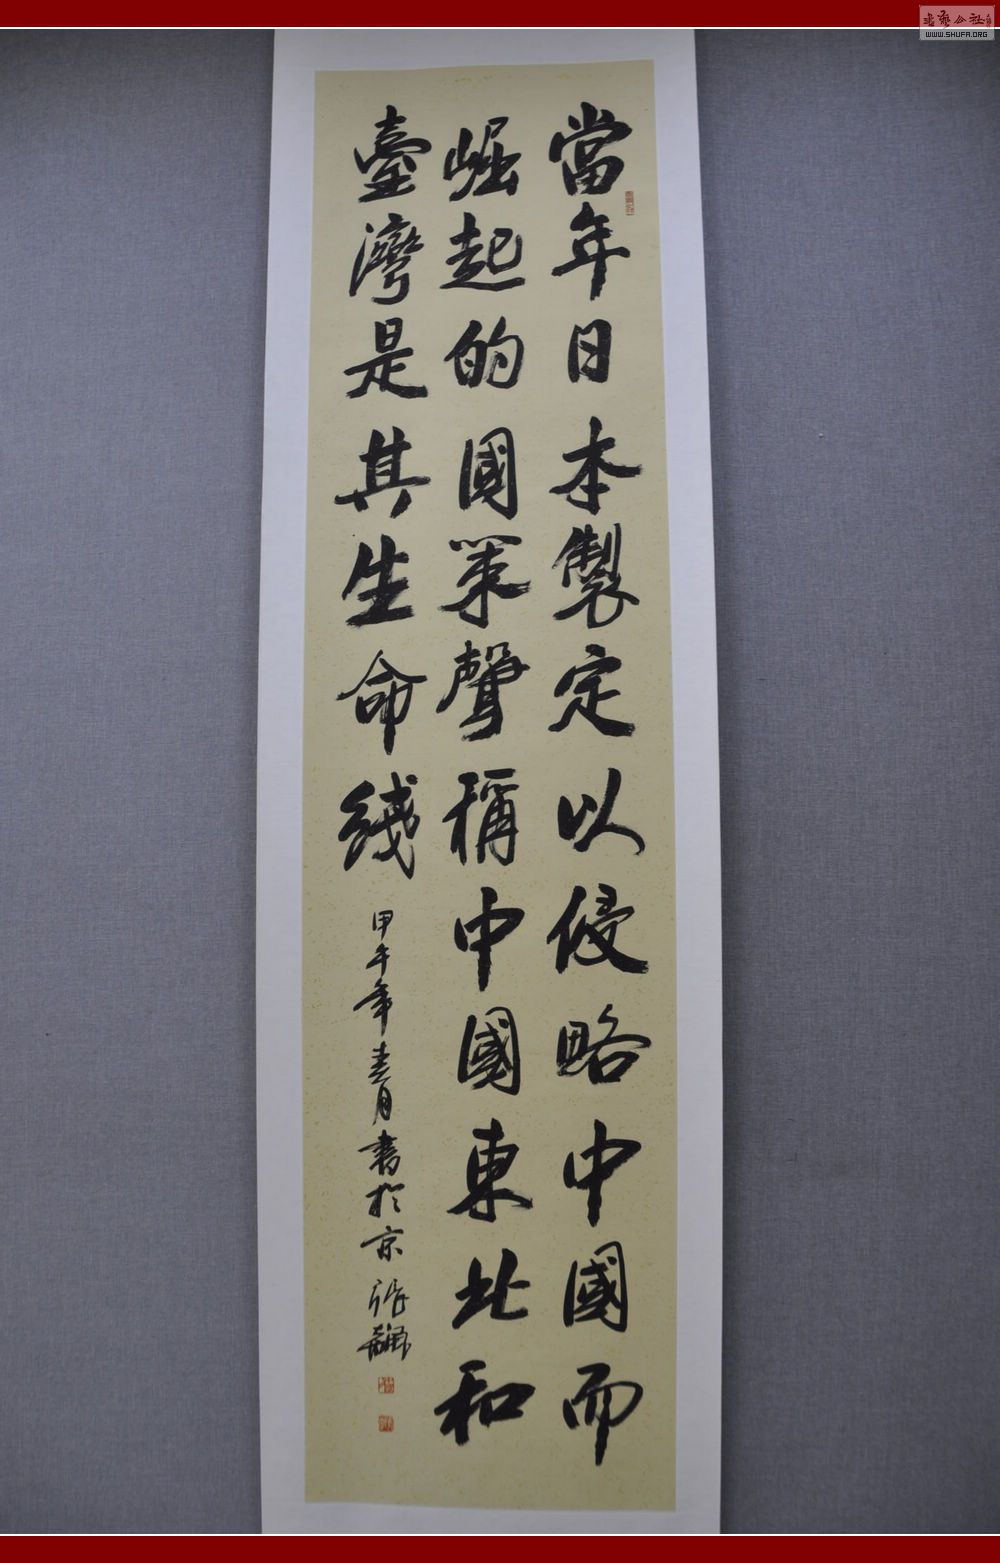 當年日本製定以侵略中國而
崛起的國策聲稱中國東北和
臺灣是其生命綫
甲午年春月書於京 張
书艺公社
WWW.SHUFA.ORG